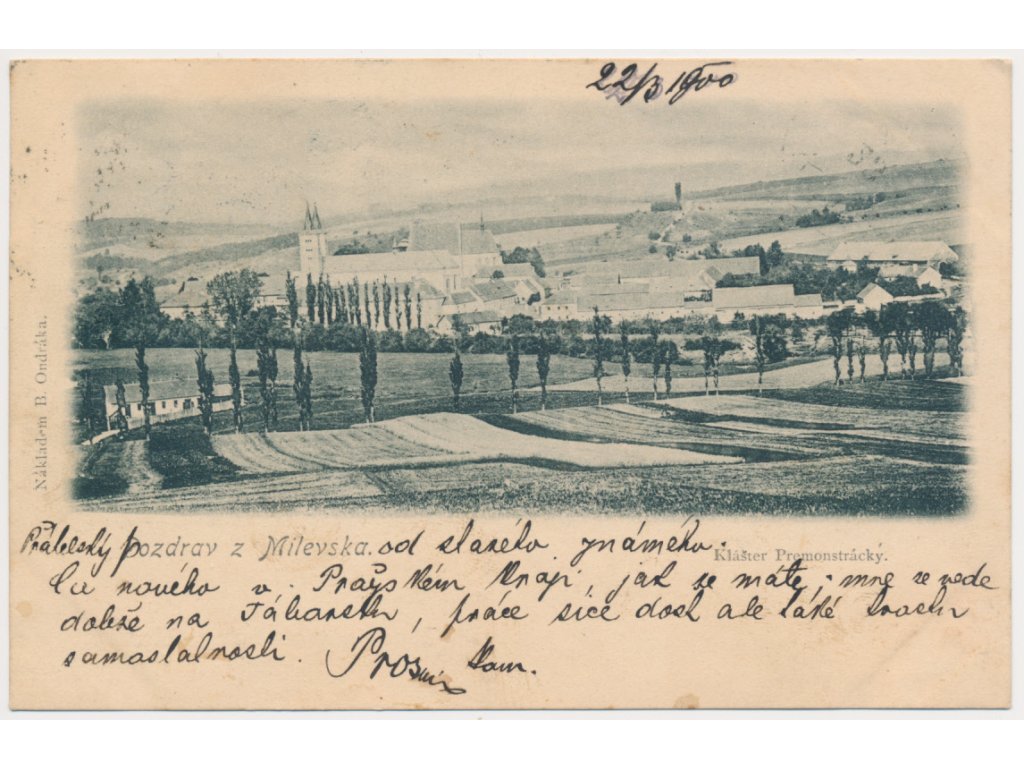 22/3 1900
Nákladem B. Ondráka.
Přátelský pozdrav z Milevska. od starého známého.
Klášter Premonstrácký.
Co nového v Pražském kraji, jak se máte, mne se vede
dobře na Táborsku, práce sice dost ale také trochu
samostatnosti.